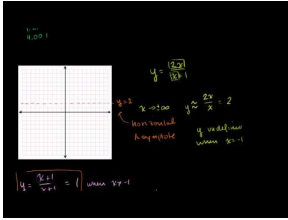 4.001
y = 2x / x+1
y=2
x → ±∞ y ≈ 2x / x = 2
Horizontal
Asymptote
y undefined
when x=-1
y = x+1 / x+1 = 1 when x≠-1